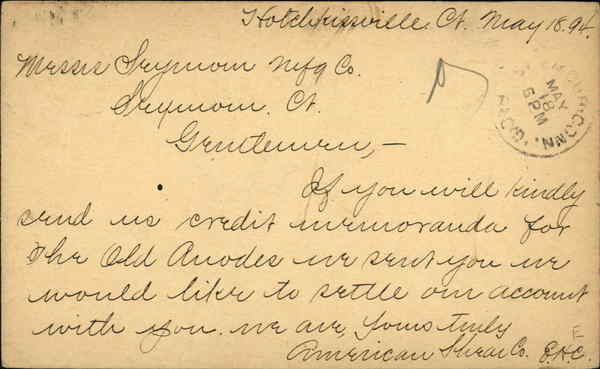 Hotchkissville. Ct. May 18. 94.
Messrs Seymour Mfg Co.
Seymour. Ct.
Gentlemen,—
If you will kindly
send us credit memoranda for
The Old Anodes we sent you we
would like to settle our account
with you. we are, Yours truly
American Shear Co.
E.
SEYMOUR. CONN. REC'D.
MAY
18
5 PM